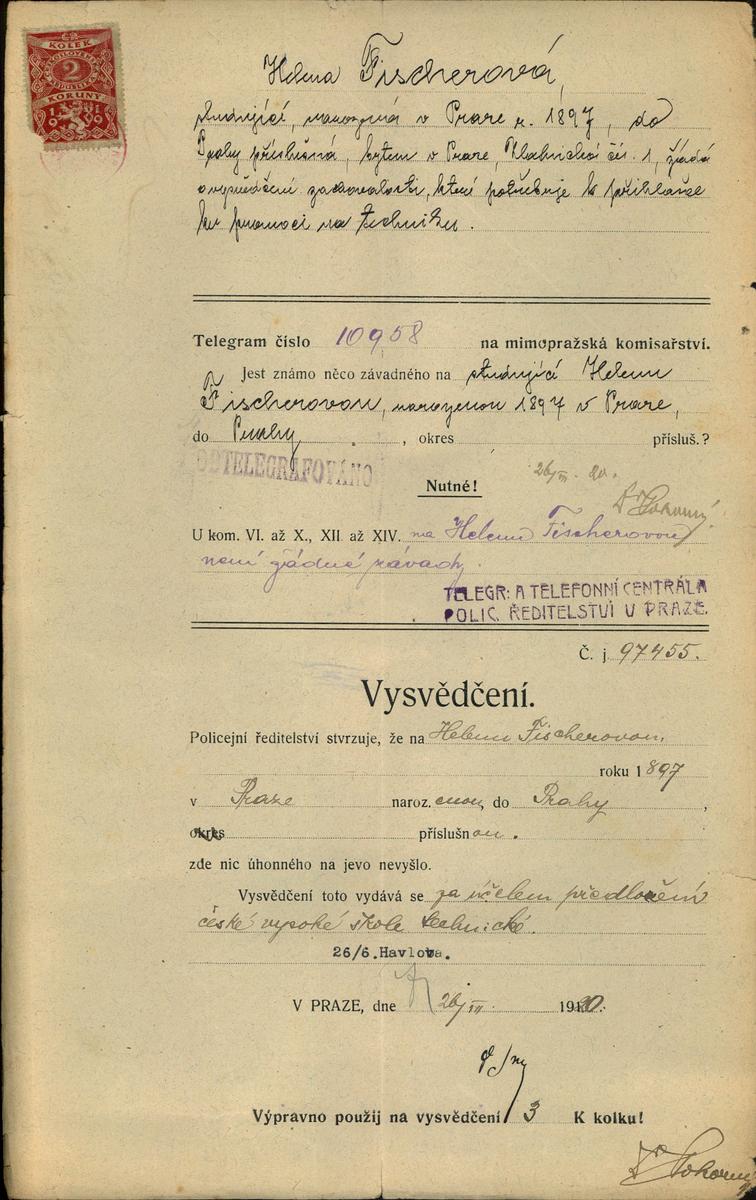 KOLEK
2
KORUNY
1919
Helena Fischerová,
studující, narozená v Praze r. 1897, do
Prahy příslušná, bytem v Praze, čís. 1, žádá
o vysvědčení zachovalosti, které potřebuje k přihlášce
ku promoci na techniku.
Telegram číslo 10958 na mimopražská komisařství.
Jest známo něco závadného na studující Helenu
Fischerovou, narozenou 1897 v Praze,
do Prahy , okres přísluš.?
ODTELEGRAFOVÁNO
Nutné!
Dr Pokorný
U kom. VI. až X., XII. až XIV. na Helenu Fischerovou
není žádné závady.
TELEGR. A TELEFONNÍ CENTRÁLA
POLIC. ŘEDITELSTVÍ V PRAZE.
Č. j 97455.
Vysvědčení.
Policejní ředitelství stvrzuje, že na Helenu Fischerovou,
roku 1897
v Praze naroz.enou, do Prahy ,
okres příslušnou.
zde nic úhonného na jevo nevyšlo.
Vysvědčení toto vydává se za účelem předložení
české vysoké škole technické.
26/6.Havlova.
V PRAZE, dne 26/VI. 1920.
Výpravno použij na vysvědčení 3 K kolku!
Dr Pokorný